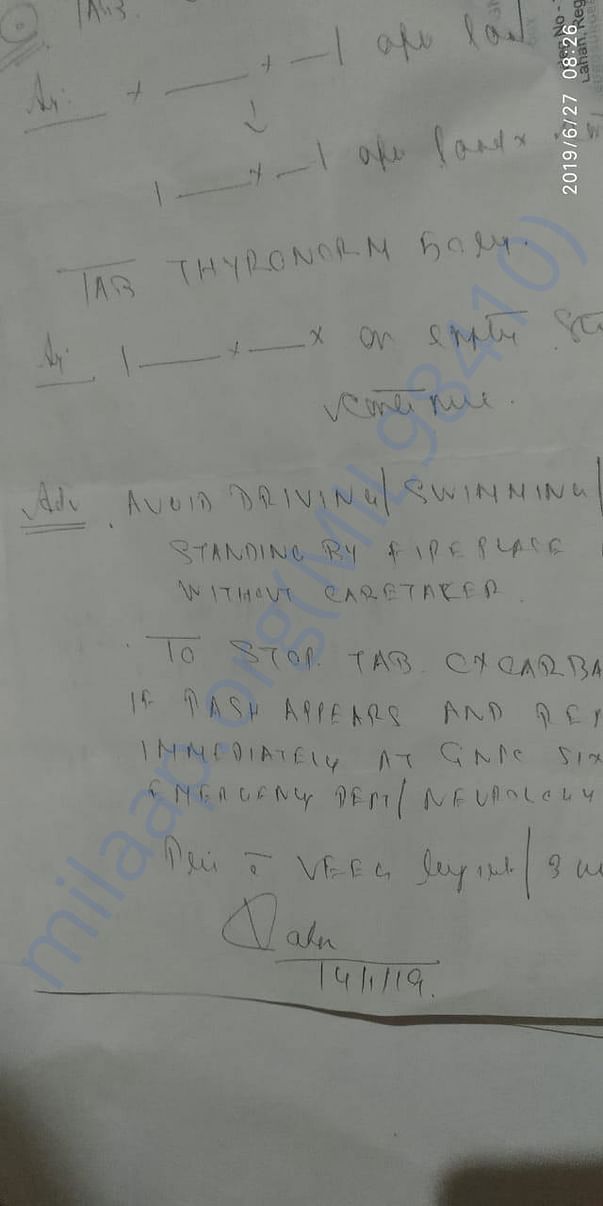 TAB
+ — + — 1 after food
↓
1 — x — 1 after food x
TAB THYRONORM
1 — x — x on empty
continue.
Adv. AVOID DRIVING/SWIMMING/
STANDING BY FIREPLACE
WITHOUT CARETAKER.
. TO STOP TAB. OXCARBA
IF RASH APPEARS AND REP
IMMEDIATELY AT GNRC SIX
EMERGENCY DEPT/NEUROLOGY
VEEG report/3
14/1/19.
2019/6/27 08:26
milaap.org(MIL98410)